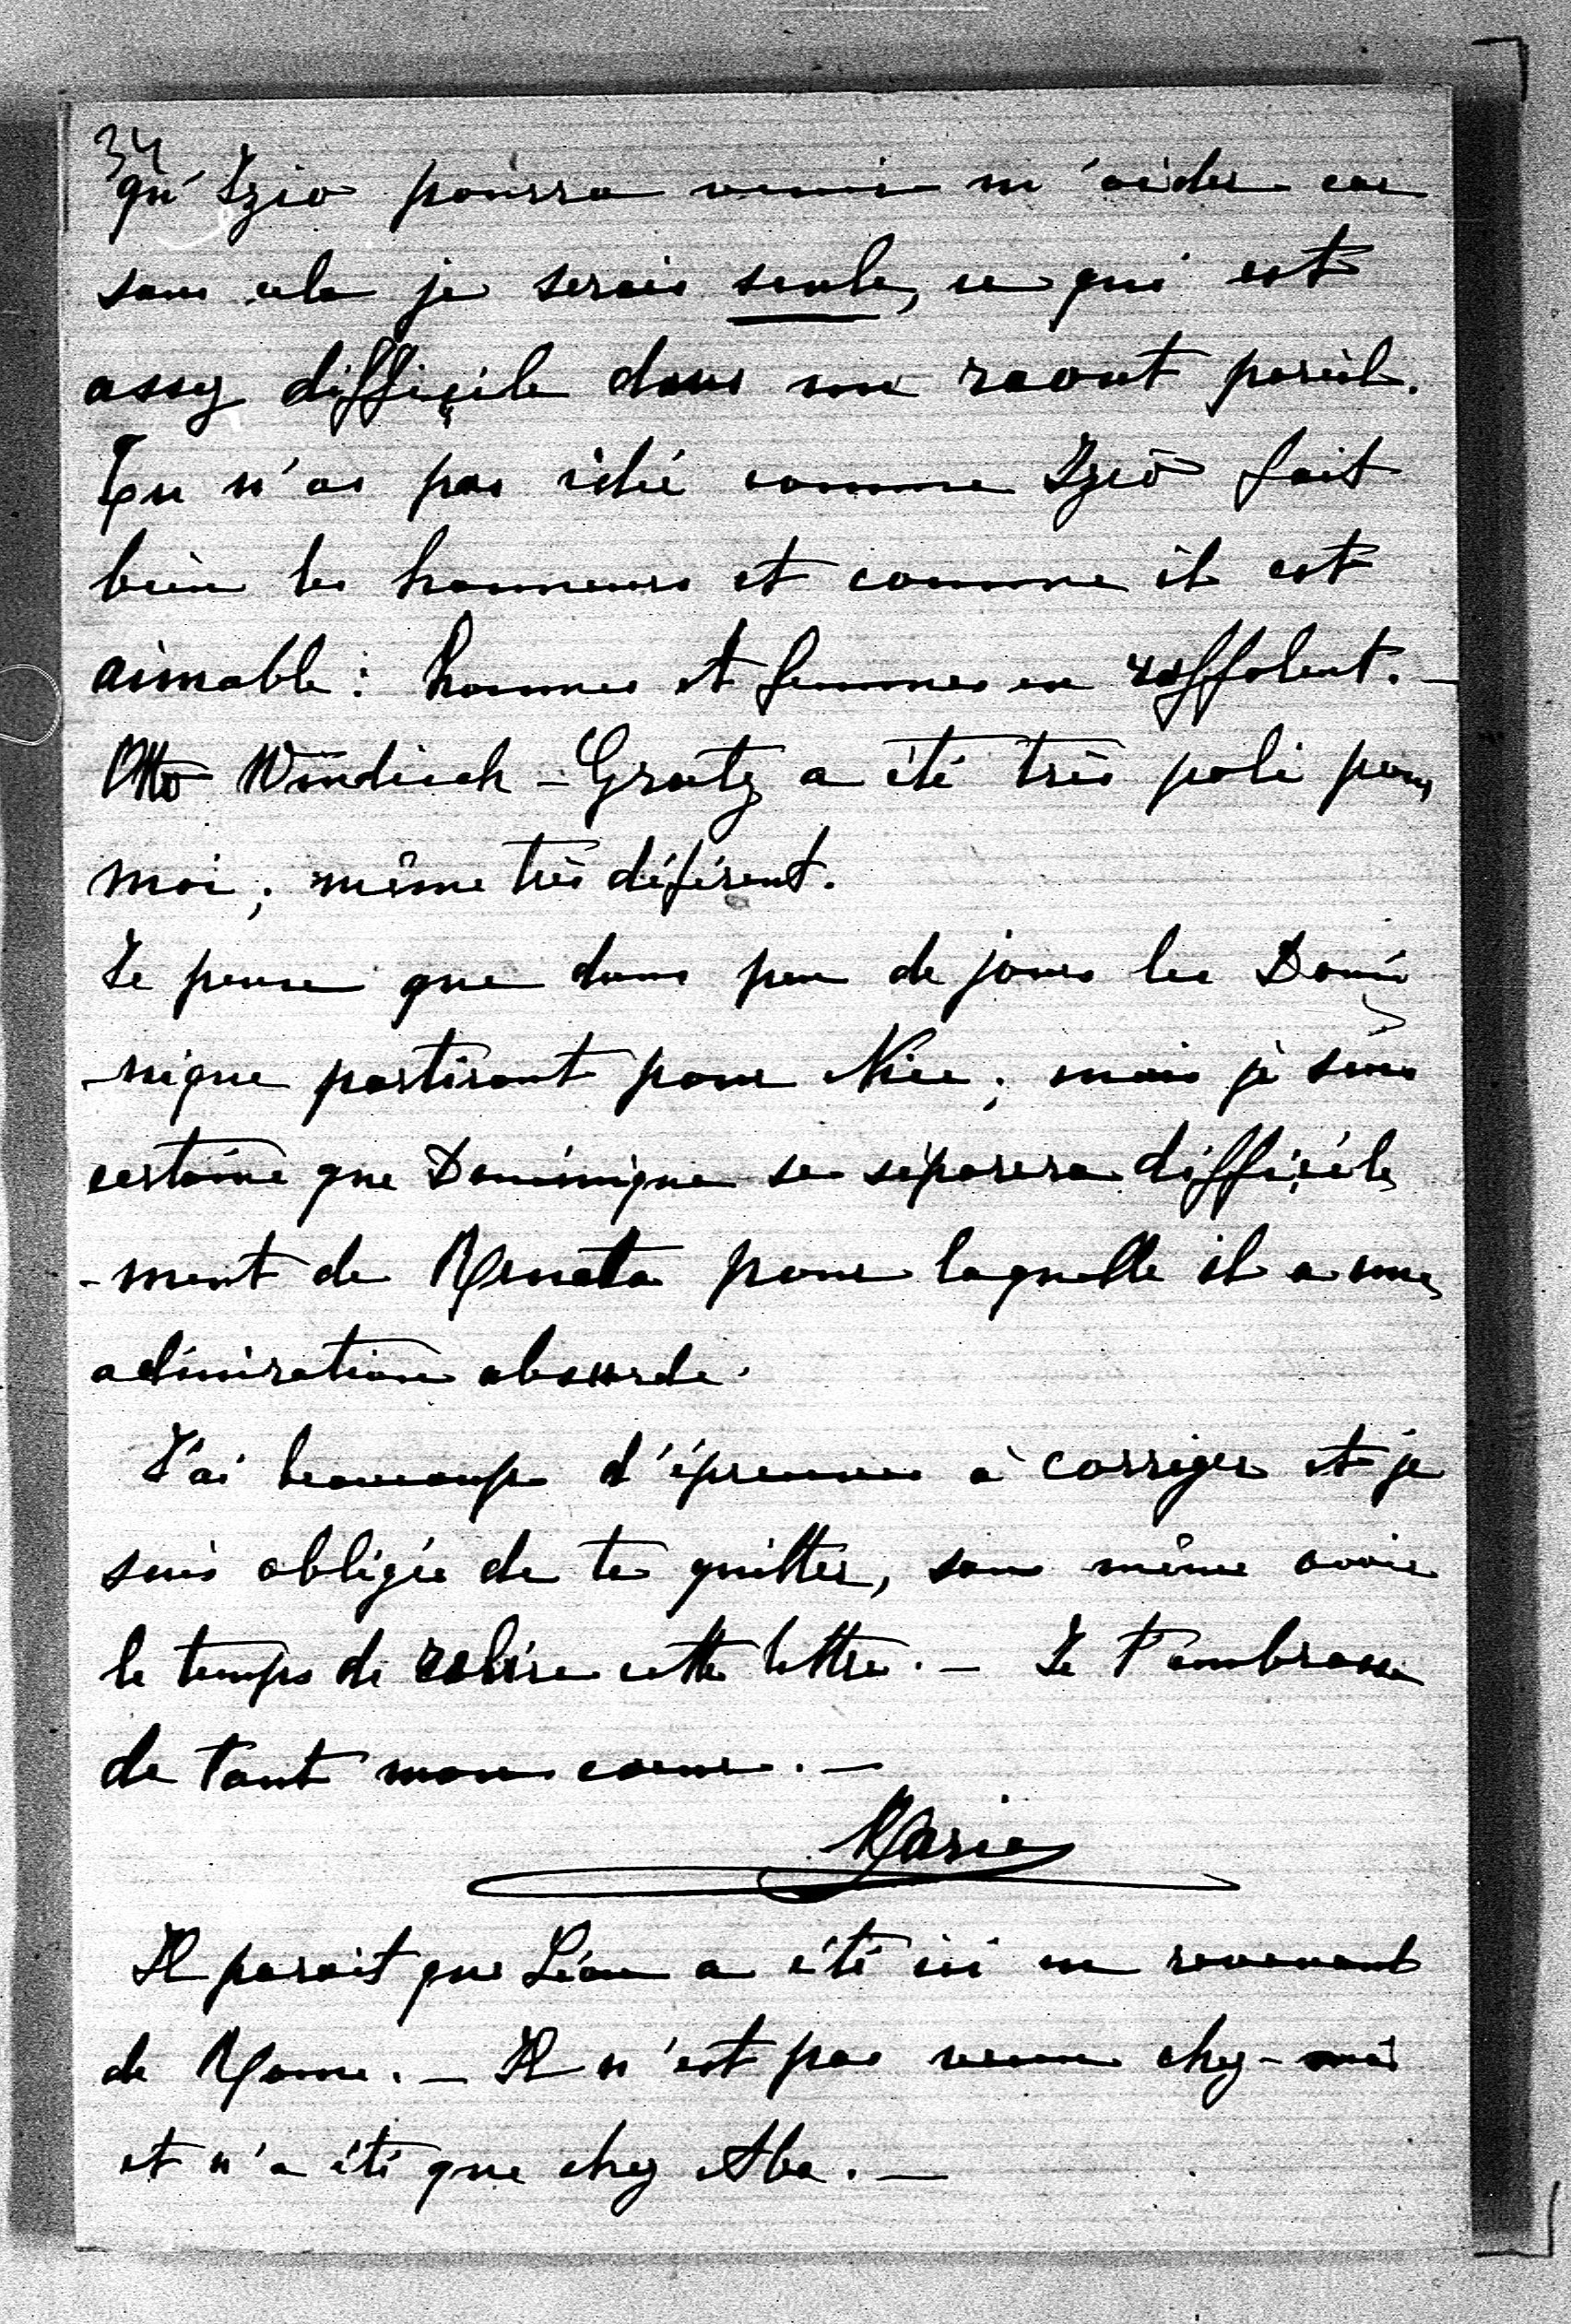 34
qu'Izio pourra venir m'aider car
sans cela je serais seule, ce qui est
assez difficile dans un raout pareil.
Tu n'as pas idée comme Izio fait
bien les honneurs et comme il est
aimable: hommes et femmes en raffolent. —
Otto Windisch-Graetz a été très poli pour
moi; même très déférent.
Je pense que dans peu de jours les Domi
-nique partiront pour Nice; mais je suis
certaine que Dominique se séparera difficile
-ment de Renata pour laquelle il a une
admiration absurde.
J'ai beaucoup d'épreuves à corriger et je
suis obligée de te quitter, sans même avoir
le temps de relire cette lettre. — Je t'embrasse
de tout mon coeur. —
Marie
Il parait que Léon a été ici en revenant
de Rome. — Il n'est pas venu chez-moi
et n'a été que chez Aba. —